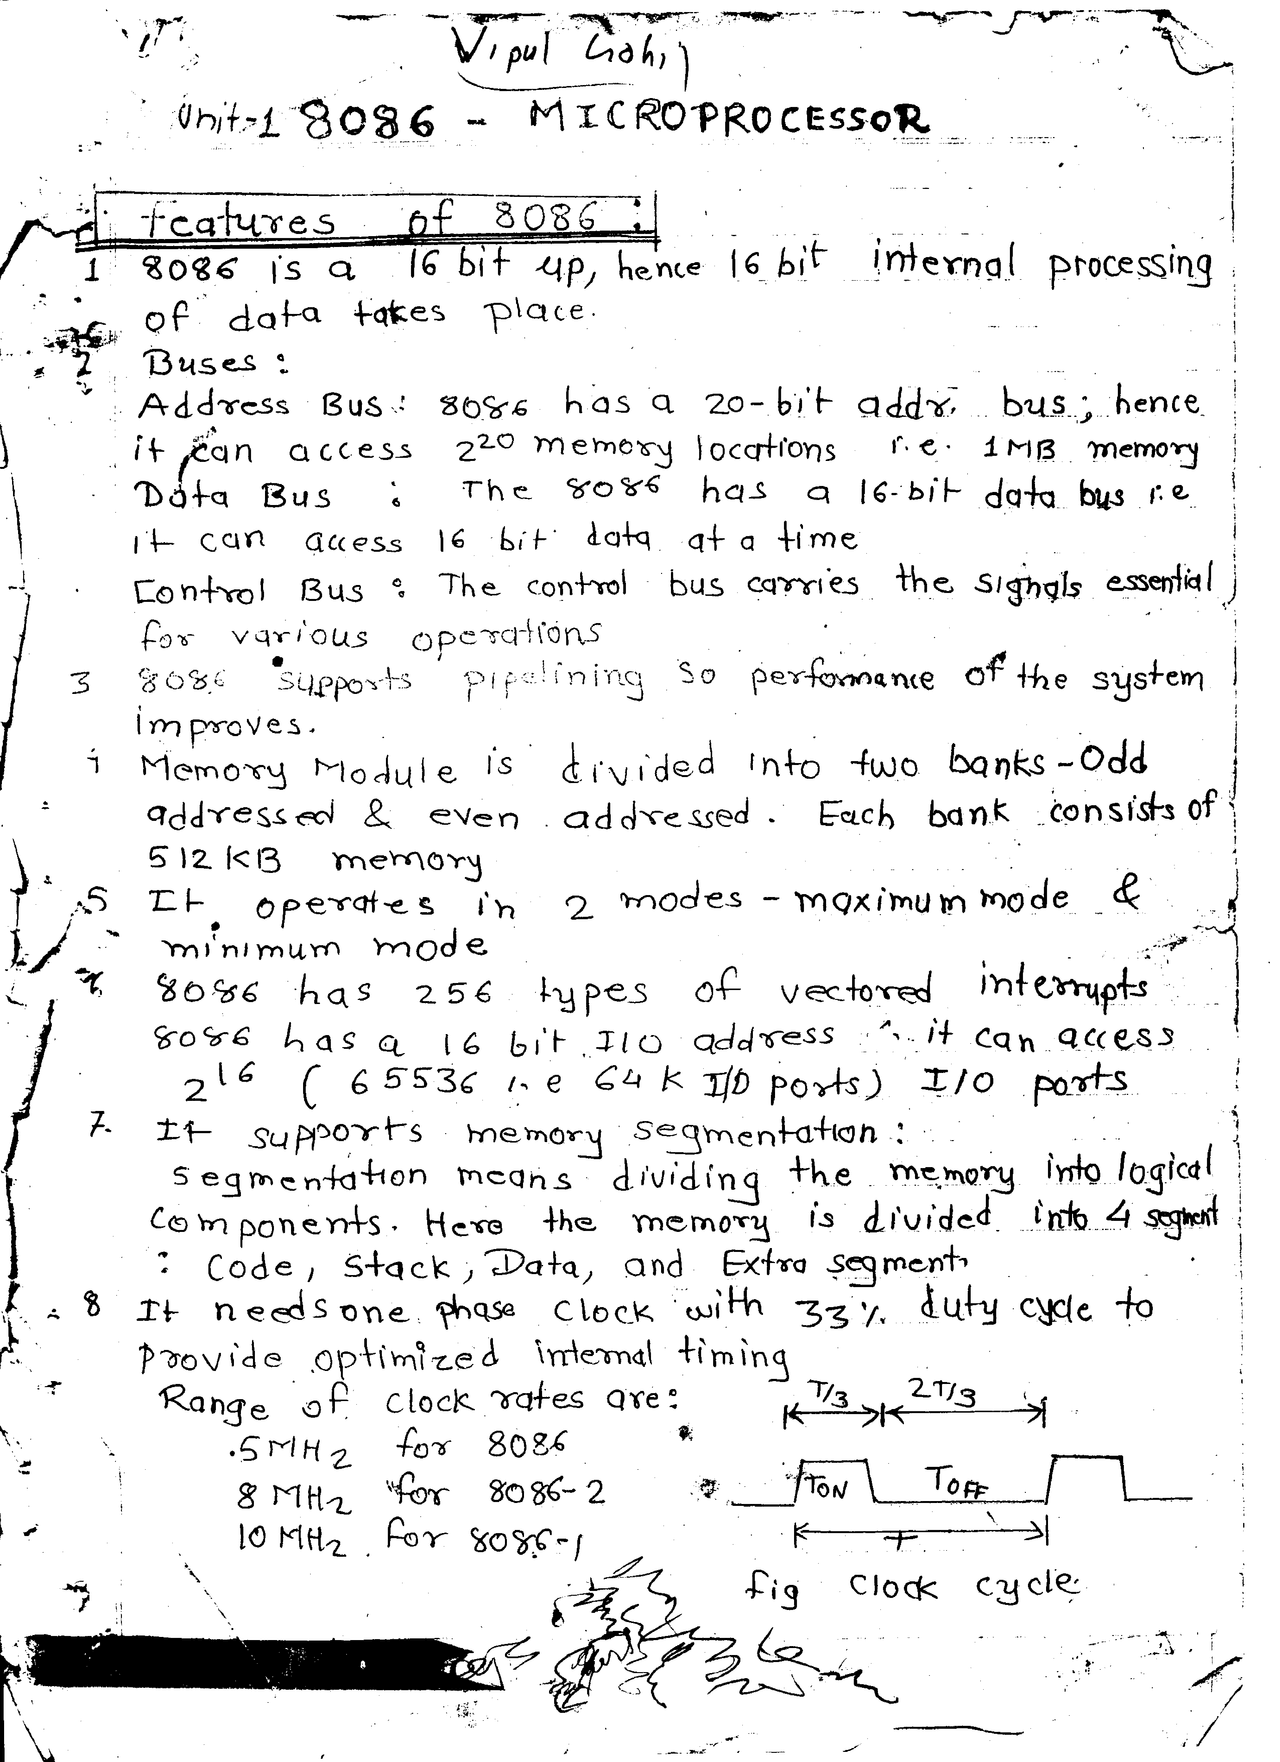 Vipul
Unit-1 8086 - MICROPROCESSOR
features of 8086 :
1 8086 is a 16 bit up, hence 16 bit internal processing
of data takes place.
2 Buses :
Address Bus : 8086 has a 20-bit addr. bus ; hence
it can access 2^20 memory locations i.e. 1MB memory
Data Bus : The 8086 has a 16-bit data bus i.e
it can access 16 bit data at a time
Control Bus : The control bus carries the signals essential
for various operations
3 8086 supports pipelining so performance of the system
improves.
4 Memory Module is divided into two banks - Odd
addressed & even addressed. Each bank consists of
512 KB memory
5 It operates in 2 modes - maximum mode &
minimum mode
8086 has 256 types of vectored interrupts
8086 has a 16 bit I/O address ∴ it can access
2^16 ( 65536 i.e 64 K I/O ports) I/O ports
7. It supports memory segmentation :
segmentation means dividing the memory into logical
components. Here the memory is divided into 4 segment
: Code, Stack, Data, and Extra segment
8 It needs one phase clock with 33% duty cycle to
provide optimized internal timing
Range of clock rates are :
5 MHz for 8086
8 MHz for 8086-2
10 MHz for 8086-1
T/3 2T/3
TON TOFF
T
fig clock cycle